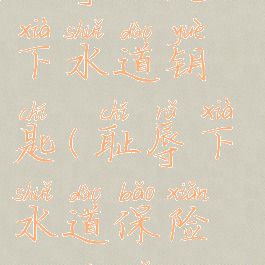 xià shuǐ dào yuè
下水道钥
chí chǐ rǔ xià
匙(耻辱下
shuǐ dào bǎo xiǎn
水道保险